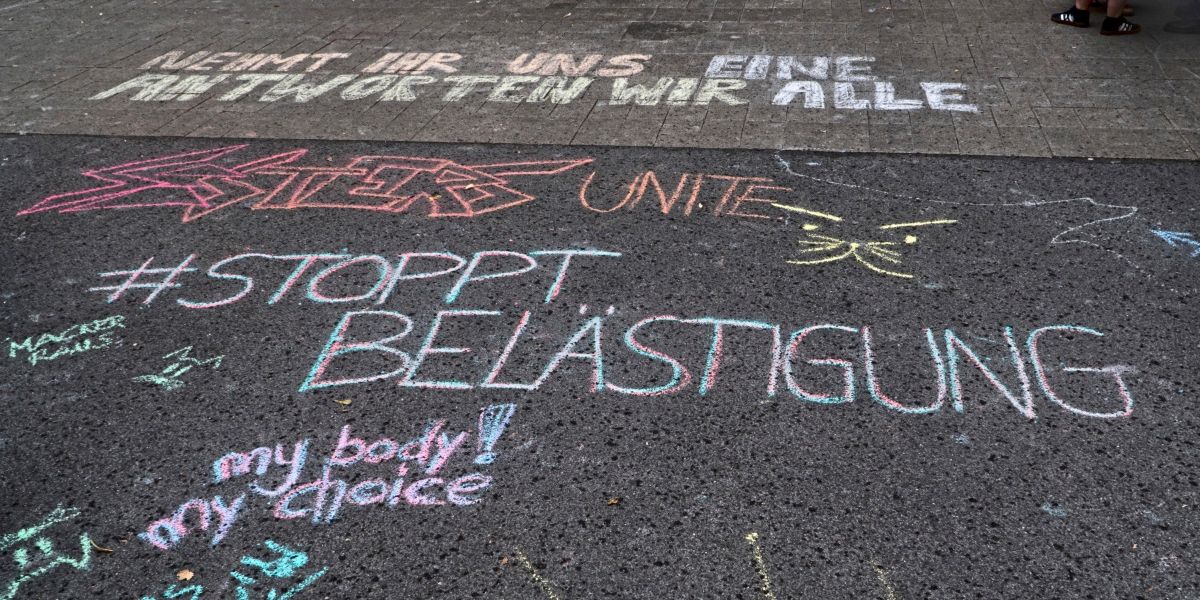 NEHMT IHR UNS EINE
ANTWORTEN WIR ALLE
SISTERS UNITE
#STOPPT
BELÄSTIGUNG
MACKER
RAUS
my body!
my choice